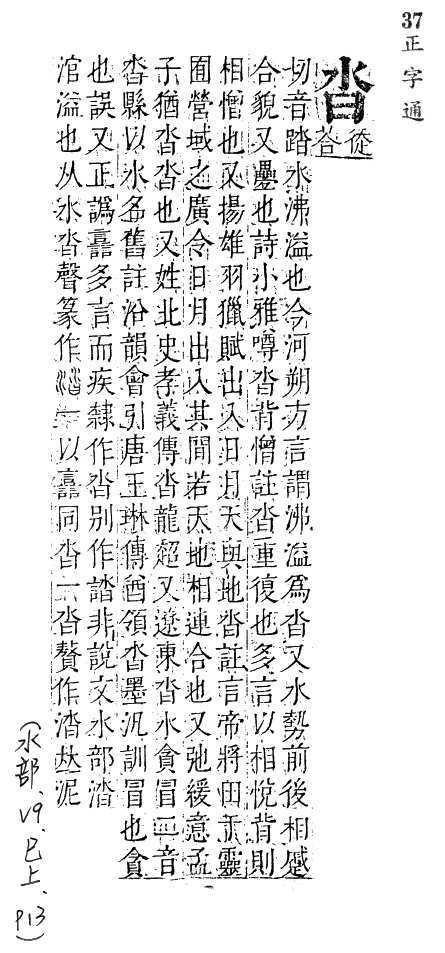 37正字通
沓
從荅
切音踏水沸溢也今河朔方言謂沸溢爲沓又水勢前後相蹙
合貌又疊也詩小雅噂沓背憎註沓重復也多言以相悅背則
相憎也又揚雄羽獵賦出入日月天與地沓註言帝將田于靈
囿營域之廣令日月出入其間若天地相連合也又弛緩意孟
子猶沓沓也又姓北史孝義傳沓龍超又遼東沓水貪冒二音
沓縣以水名舊註韻會引唐王琳傳酋領沓墨汎訓冒也貪
也誤又正譌譶多言而疾隸作沓別作誻非說文水部涾
涫溢也从水沓聲篆作涾一以譶同沓一沓贅作涾𠀤泥
(水部、V9.巳上、P13)